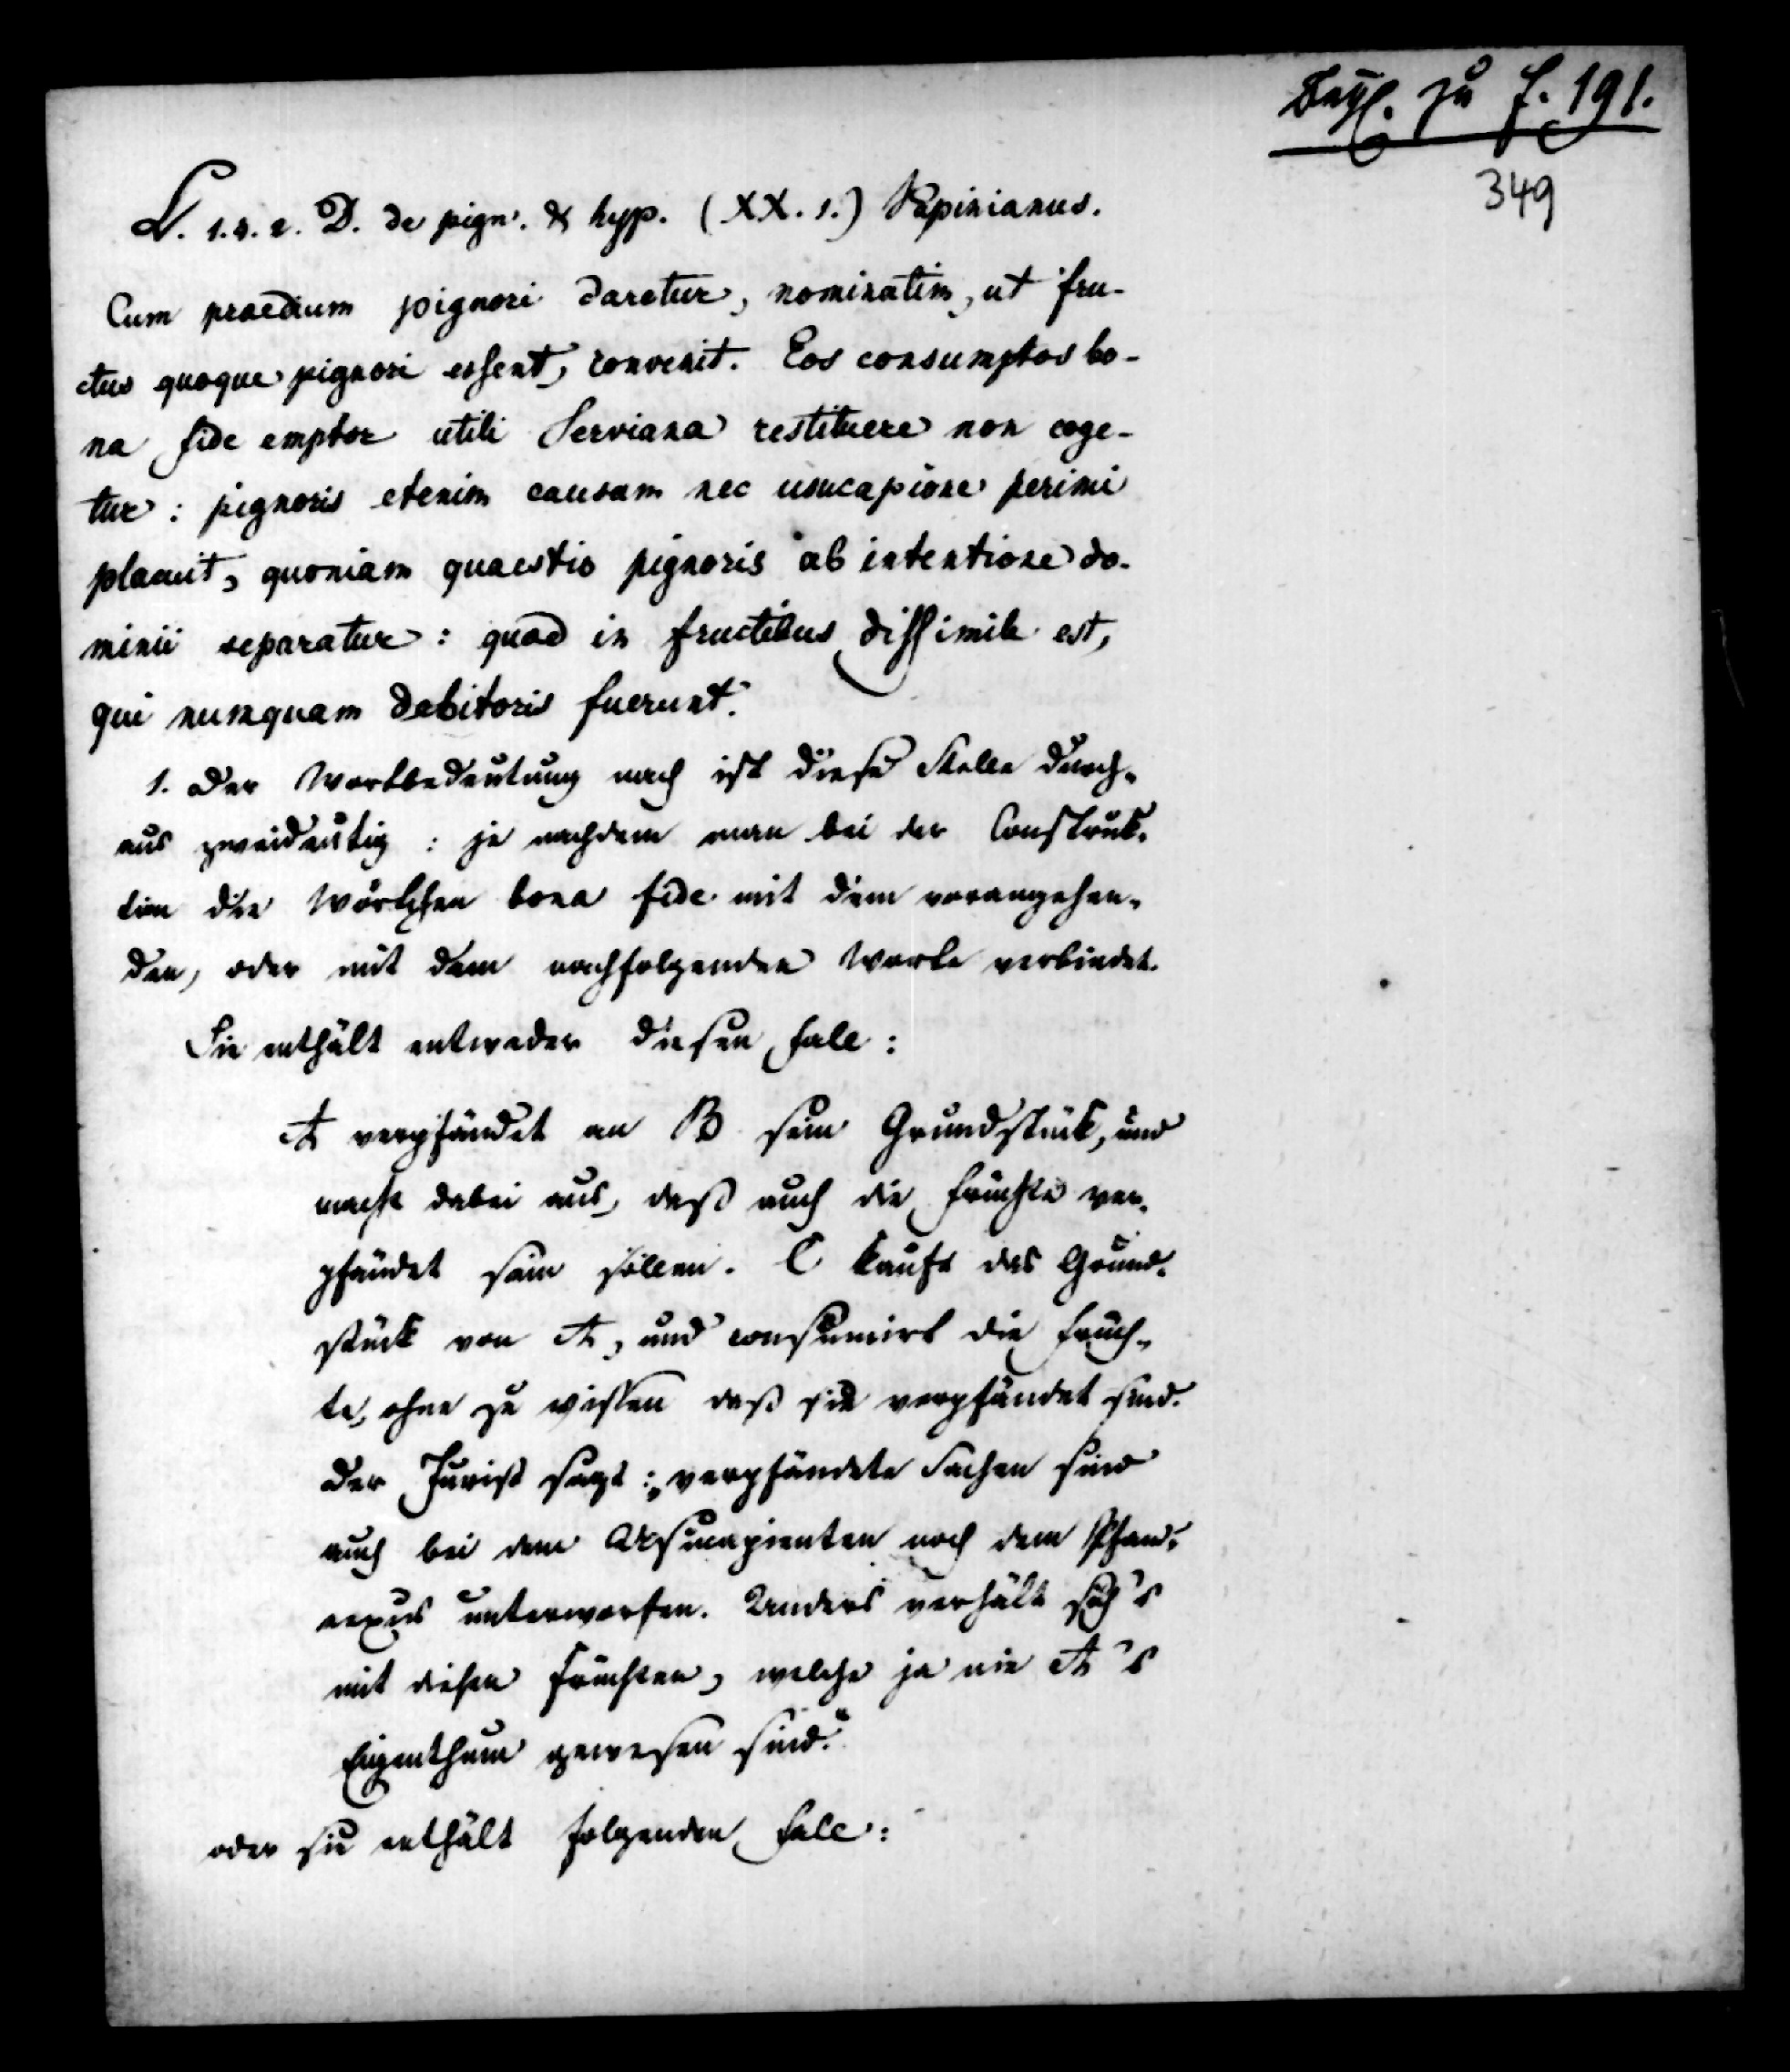 Beyl. zu f. 191.
349
L. 1. §. 2. D. de pign. & hyp. (XX. 1.) Papinianus.
Cum praedium pignori daretur, nominatim, ut fru-
ctus quoque pignori essent, convenit. Eos consumptos bo-
na fide emptor utili Serviana restituere non coge-
tur: pignoris etenim causam nec usucapione perimi
placuit, quoniam quaestio pignoris ab intentione do-
minii separatur: quod in fructibus dissimile est,
qui nunquam debitoris fuerunt.
1. Der Wortbedeutung nach ist diese Stelle durch-
aus zweideutig: je nachdem man bei der Construk-
tion die Wörtchen bona fide mit dem vorangehen-
den, oder mit dem nachfolgenden Worte verbindet.
Sie enthält entweder diesen Fall:
A verpfändet an B sein Grundstück, und
macht dabei aus, daß auch die Früchte ver-
pfändet sein sollen. C kauft das Grund-
stück von A, und consumirt die Früch-
te, ohne zu wissen daß sie verpfändet sind.
Der Jurist sagt: „verpfändete Sachen sind
auch bei dem Usucapienten noch dem Pfand-
nexus unterworfen. Anders verhält sich's
mit diesen Früchten, welche ja nie A's
Eigenthum gewesen sind."
oder sie enthält folgenden Fall: